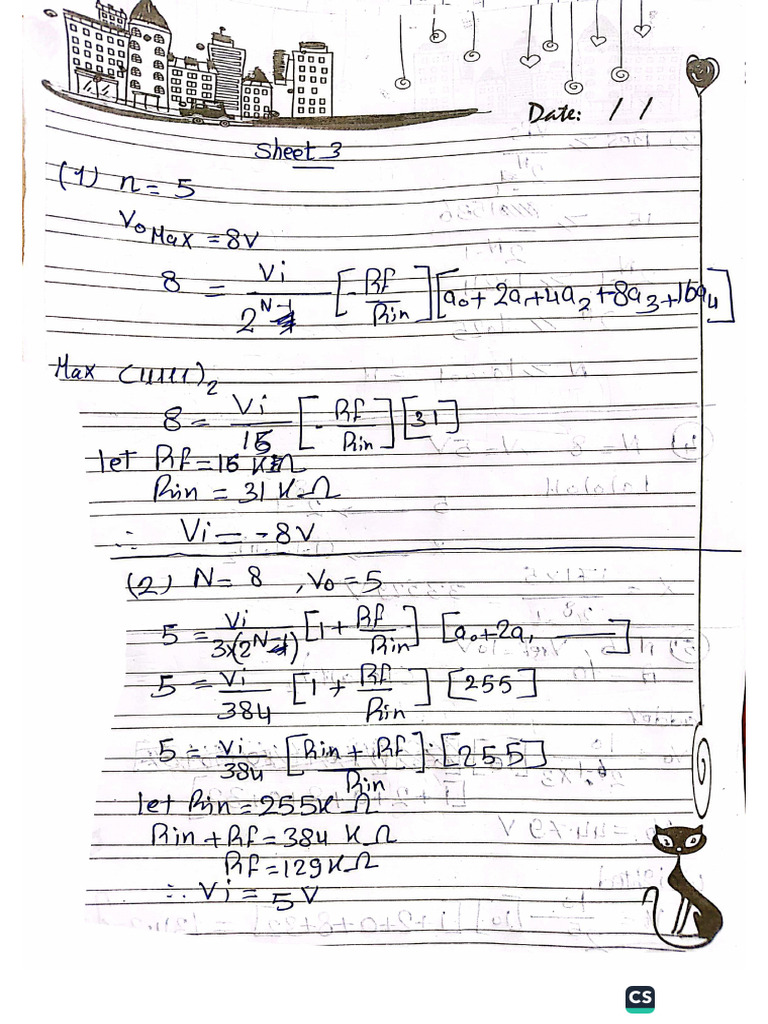 Date: / /
Sheet 3
(1) n = 5
Vo Max = 8V
8 = Vi / 2^(N-1) [- Rf / Rin] [a0 + 2a1 + 4a2 + 8a3 + 16a4]
Max (11111)2
8 = Vi / 16 [- Rf / Rin] [31]
let Rf = 16 KΩ
Rin = 31 KΩ
∴ Vi = -8V
(2) N = 8 , Vo = 5
5 = Vi / 3×(2^(N-1)) [1 + Rf / Rin] [a0 + 2a1 ——]
5 = Vi / 384 [1 + Rf / Rin] [255]
5 = Vi / 384 [Rin + Rf / Rin] [255]
let Rin = 255K Ω
Rin + Rf = 384 KΩ
Rf = 129KΩ
∴ Vi = 5V
CS